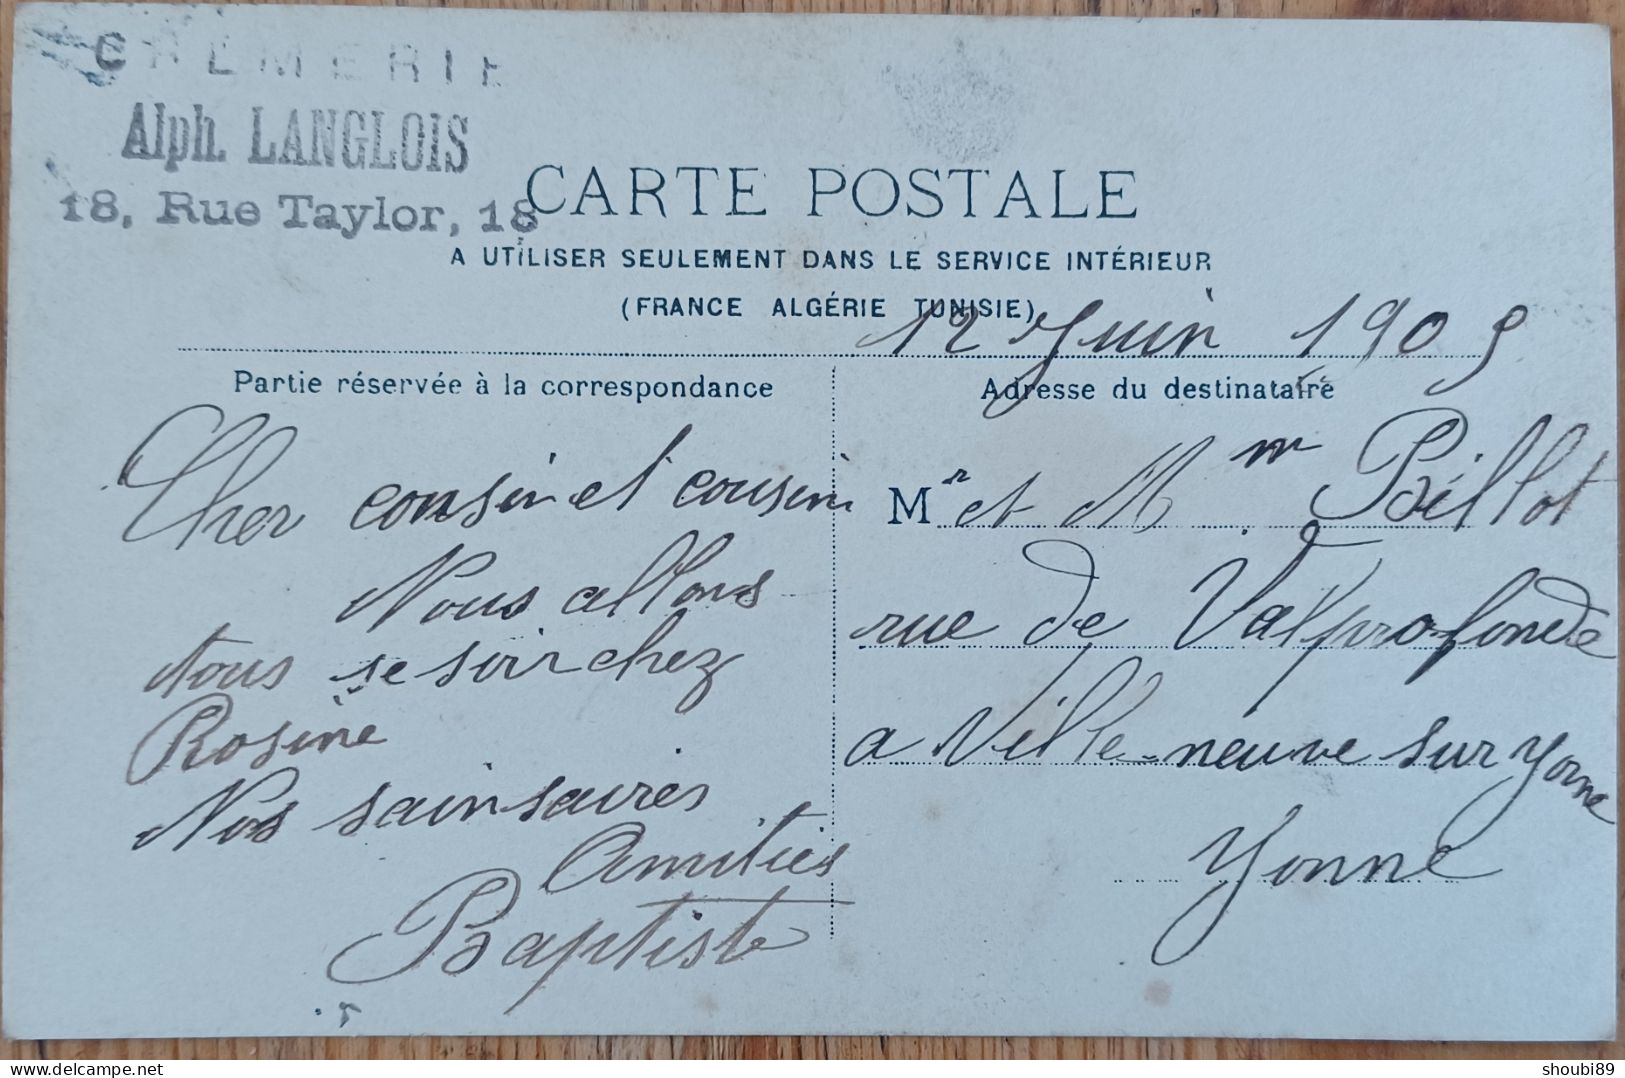 CREMERIE
Alph. LANGLOIS
18, Rue Taylor, 18
CARTE POSTALE
A UTILISER SEULEMENT DANS LE SERVICE INTÉRIEUR
(FRANCE ALGÉRIE TUNISIE)
12 Juin 1905
Partie réservée à la correspondance
Adresse du destinataire
Cher cousin et cousine
Nous allons
tous se soir chez
Rosine
Nos sainsaires
Amitiés
Baptiste
Mr et Mm Billot
rue de Valprofonde
a Ville-neuve sur Yonne
Yonne
delcampe.net
shoubi89